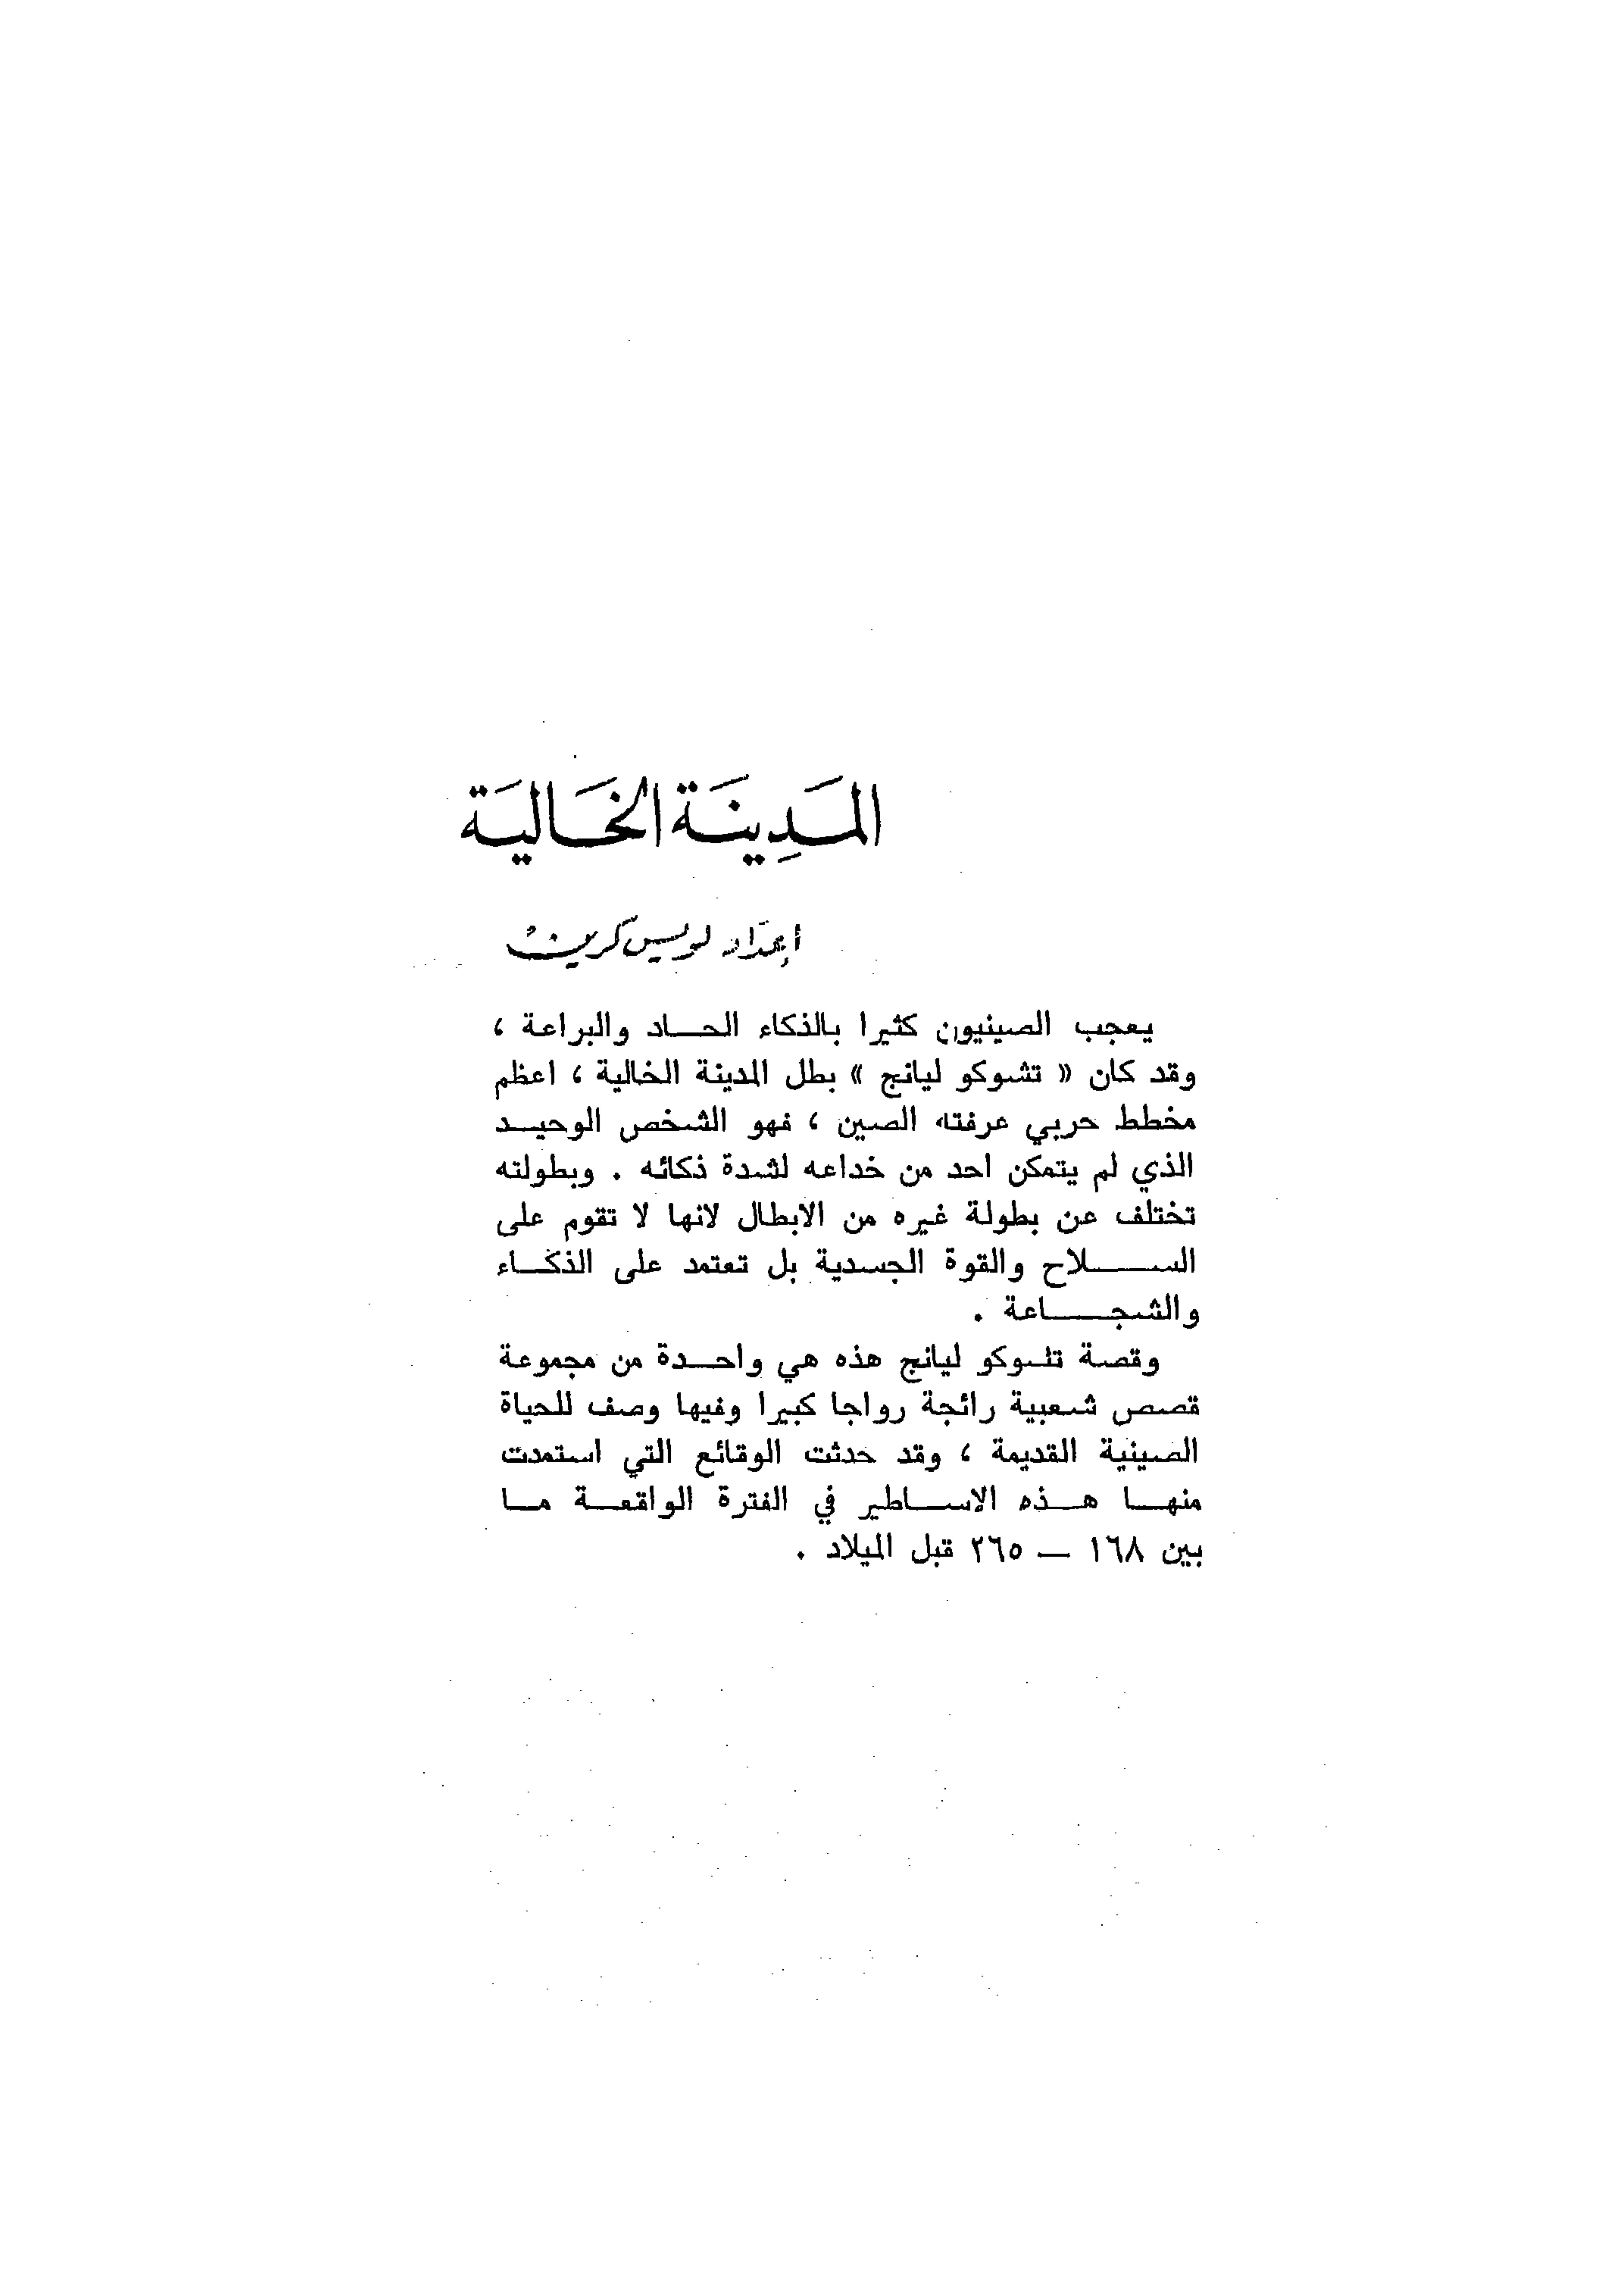 المَدِينَة الخَالِيَة
إعداد لويس كرين
يعجب الصينيون كثيرا بالذكاء الحـاد والبراعة ،
وقد كان « تشوكو ليانج » بطل المدينة الخالية ، اعظم
مخطط حربي عرفته الصين ، فهو الشخص الوحيـد
الذي لم يتمكن احد من خداعه لشدة ذكائه . وبطولته
تختلف عن بطولة غيره من الابطال لانها لا تقوم على
الســـلاح والقوة الجسدية بل تعتمد على الذكـاء
والشجـــاعة .
وقصة تشوكو ليانج هذه هي واحـدة من مجموعة
قصص شعبية رائجة رواجا كبيرا وفيها وصف للحياة
الصينية القديمة ، وقد حدثت الوقائع التي استمدت
منهـا هـذه الاسـاطير في الفترة الواقعـة مـا
بين ١٦٨ — ٢٦٥ قبل الميلاد .